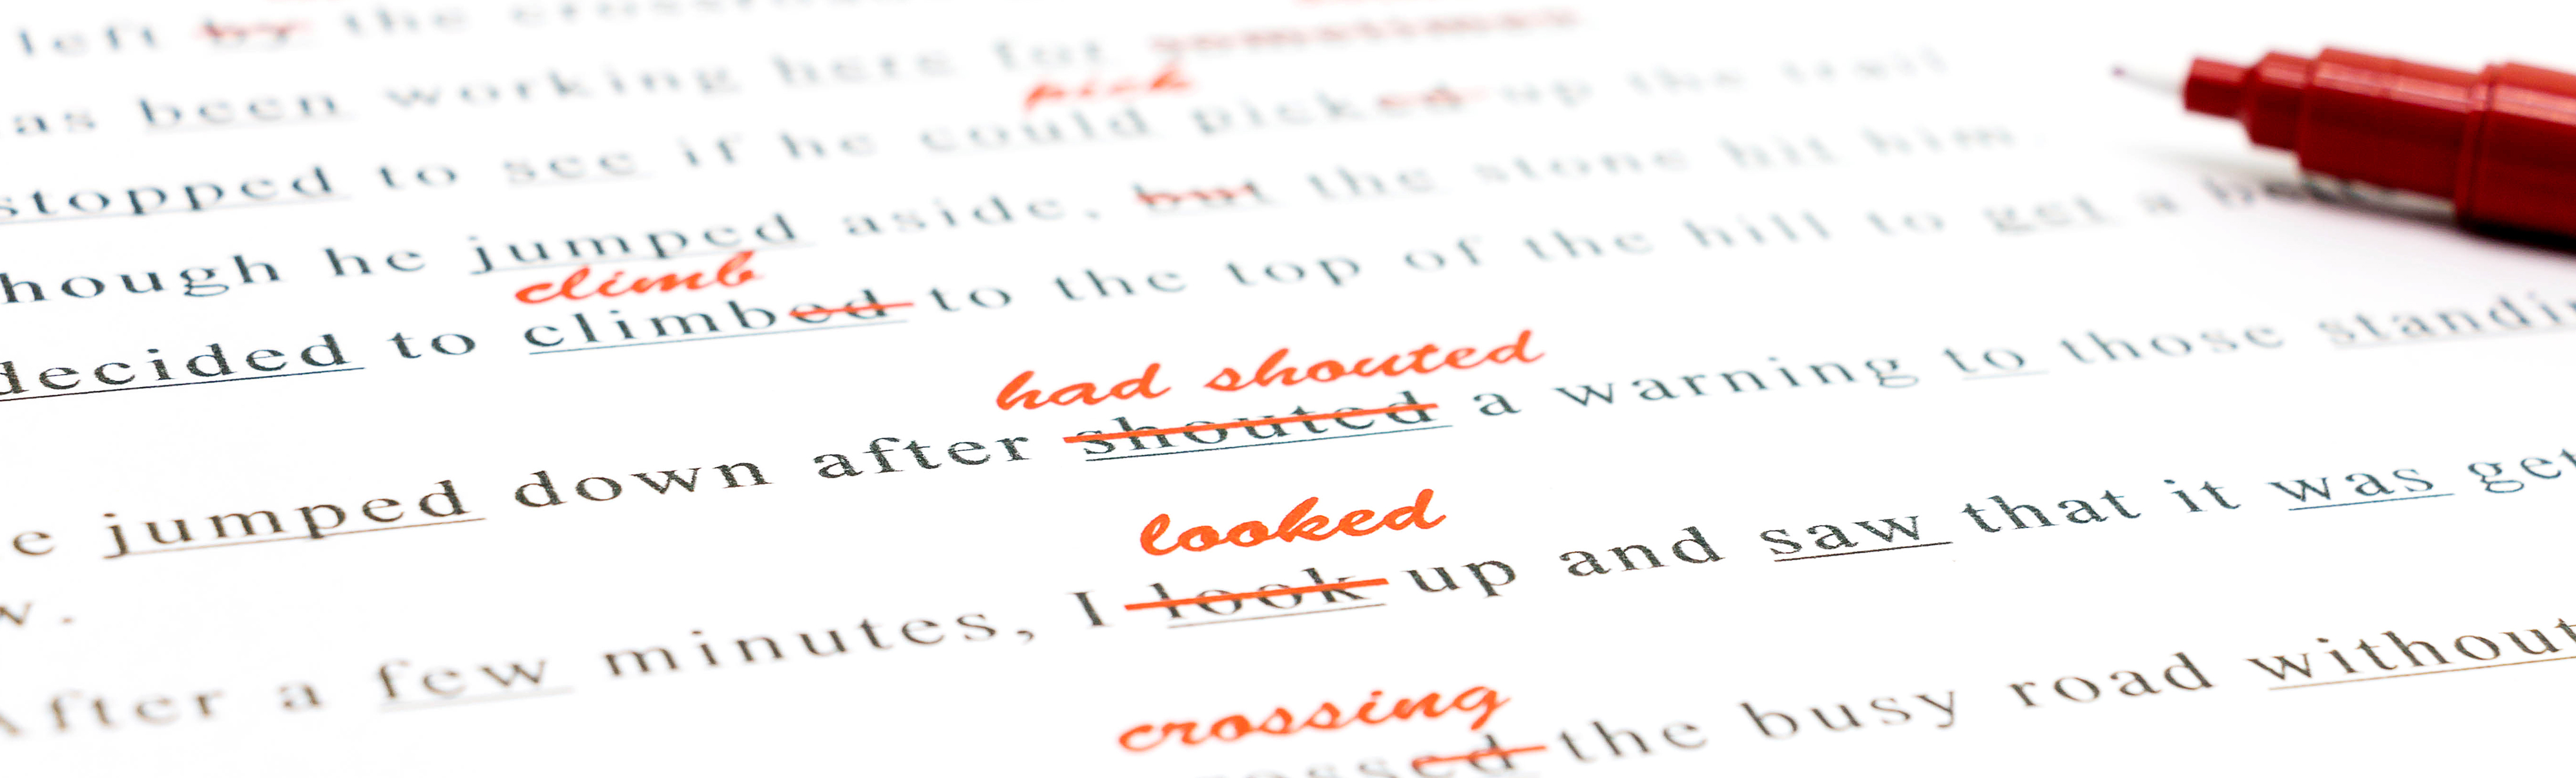 left by the
as been working here for sometimes
pick
stopped to see if he could picked up the trail
hough he jumped aside, but the stone hit him.
climb
decided to climbed to the top of the hill to get a
had shouted
e jumped down after shouted a warning to those standi
looked
w.
After a few minutes, I look up and saw that it was get
crossing
ossed the busy road without